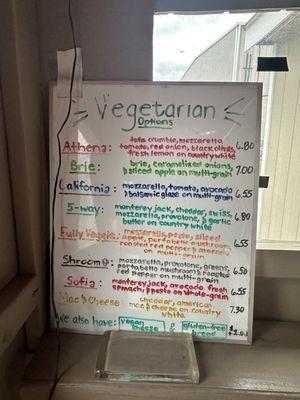 Vegetarian
Options
Athena: tofu crumble, mozzarella,
tomato, red onion, black olives,
fresh lemon on country white 6.80
Brie: brie, caramelized onions,
& sliced apple on multi-grain 7.00
California: mozzarella, tomato, avocado
& balsamic glaze on multi-grain 6.55
5-way: monterey jack, cheddar, swiss,
mozzarella, provolone, & garlic
butter on country white 6.80
Fully Veggie: mozzarella, pesto, sliced
apple, portabello mushroom,
roasted red pepper &
on multi-grain 6.55
Shroom: mozzarella, provolone, greens,
portabello mushroom & roasted
red pepper on multi-grain 6.50
Sofia: monterey jack, avocado, fresh
spinach, & pesto on whole-grain 6.55
Mac & Cheese: cheddar, american
mac & cheese on country
white 7.30
We also have: vegan
cheese & gluten-free
bread